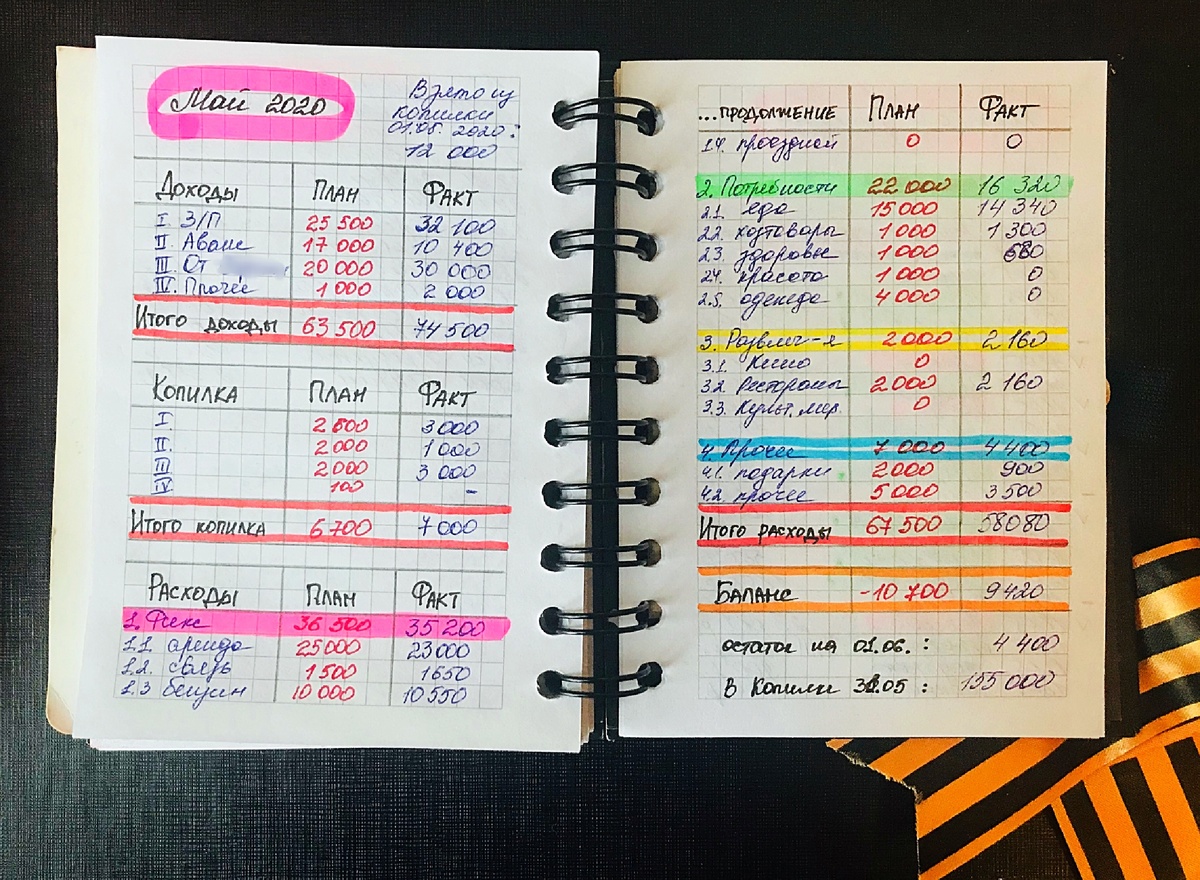 Май 2020
Взято из
копилки
01.05. 2020:
12 000
Доходы ПЛАН ФАКТ
I. З/П 25 500 32 100
II. Аванс 17 000 10 400
III. От 20 000 30 000
IV. Прочее 1 000 2 000
Итого доходы 63 500 74 500
Копилка ПЛАН ФАКТ
I. 2 600 3 000
II. 2 000 1 000
III 2 000 3 000
IV. 100 -
Итого копилка 6 700 7 000
Расходы ПЛАН ФАКТ
1. Фикс 36 500 35 200
1.1. аренда 25 000 23 000
1.2. связь 1 500 1650
1.3 бензин 10 000 10 550
...продолжение ПЛАН ФАКТ
1.4. проездной 0 0
2. Потребности 22 000 16 320
2.1. еда 15 000 14 340
2.2. хозтовары 1 000 1 300
2.3. здоровье 1 000 680
2.4. красота 1 000 0
2.5. одежда 4 000 0
3. Развлеч-я 2 000 2 160
3.1. Кино 0
3.2. Рестораны 2 000 2 160
3.3. Культ. мер. 0
4. Прочее 7 000 4 400
4.1. подарки 2 000 900
4.2. прочее 5 000 3 500
Итого расходы 67 500 58 080
Баланс -10 700 9 420
остаток на 01.06. : 4 400
в Копилке 31.05 : 155 000